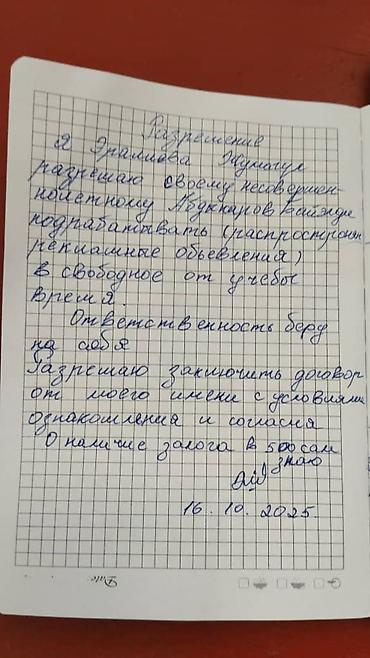 Разрешение
Я Эралиова Жумагул
разрешаю своему несовершен-
нолетнему Абдыкаров
подрабатывать (распространя
рекламные обьевления)
в свободное от учебы
время.
Ответственность беру
на себя
Разрешаю заключить договор
от моего имени с условиями
ознакомления и согласия
О наличие залога в 500 сом
знаю
16. 10. 2025.
Date